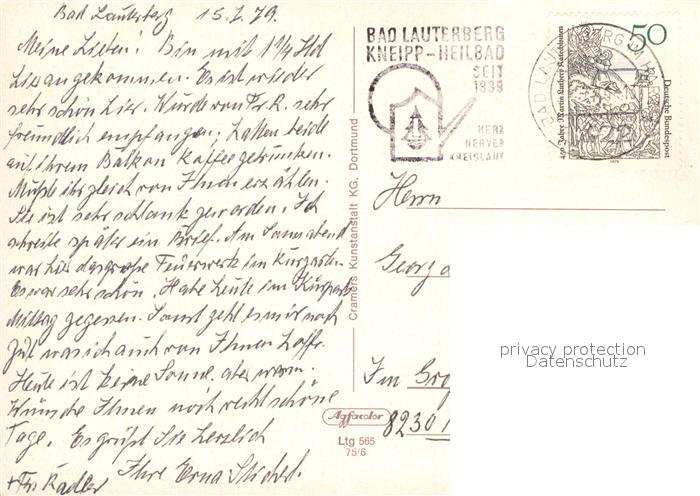 Bad Lauterberg 15.7.79.
Meine Lieben! Bin mit 1 1/4 Std
hier angekommen. Es ist wieder
sehr schön hier. Wurde von Fr. R. sehr
freundlich empfangen; haben beide
auf ihrem Balkon Kaffee getrunken.
Mußte ihr gleich von Ihnen erzählen.
Sie ist sehr schlank geworden. Ich
schreibe später ein Brief. Am Sonnabend
war hier das große Feuerwerk im Kurgarten.
Es war sehr schön. Habe heute im Kurpark
Mittag gegessen. Sonst geht es mir noch
gut was ich auch von Ihnen hoffe.
Heute ist keine Sonne, aber warm.
Wünsche Ihnen noch recht schöne
Tage. Es grüßt Sie herzlich
Ihre Erna
+ Fr.
BAD LAUTERBERG
KNEIPP-HEILBAD
SEIT
1839
HERZ
NERVEN
KREISLAUF
BAD LAUTERBERG IM HARZ
50
Deutsche Bundespost
450 Jahre Martin Luthers Katechismus
1979
Cramers Kunstanstalt KG, Dortmund
Herrn
Georg
Im
8230
Agfacolor
Ltg 565
75/6
privacy protection
Datenschutz